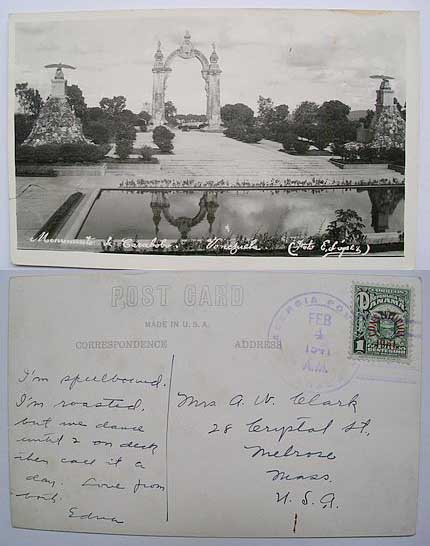 Monumento de Carabobo. - Venezuela (Foto E. López)
POST CARD
MADE IN U.S.A.
CORRESPONDENCE
ADDRESS
FEB
4
1941
A.M.
PANAMA
1941
1
I'm spellbound.
I'm roasted,
but we dance
until 2 on deck
then call it a
day. Love from
both.
Edna
Mrs A. W. Clark
28 Crystal St,
Melrose
Mass.
U.S.A.